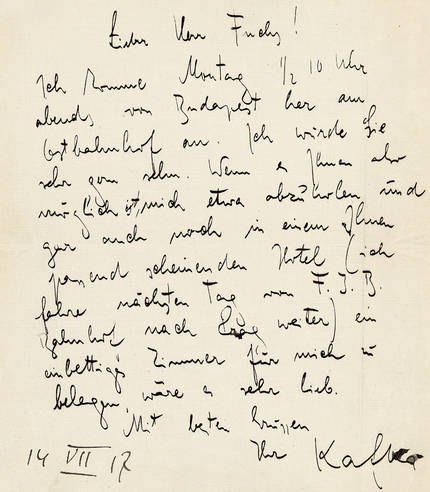 Lieber Herr Fuchs!
Ich komme Montag 1/2 10 Uhr
abends von Budapest her am
Ostbahnhof an. Ich würde Sie
sehr gern sehn. Wenn es Ihnen aber
möglich ist, mich etwa abzuholen und
gar auch noch in einem Ihnen
passend scheinenden Hotel (ich
fahre nächsten Tag vom F. J. B.
Bahnhof nach Prag weiter) ein
einbettiges Zimmer für mich zu
belegen, wäre es sehr lieb.
Mit besten Grüssen
Ihr Kafka
14 VII 17